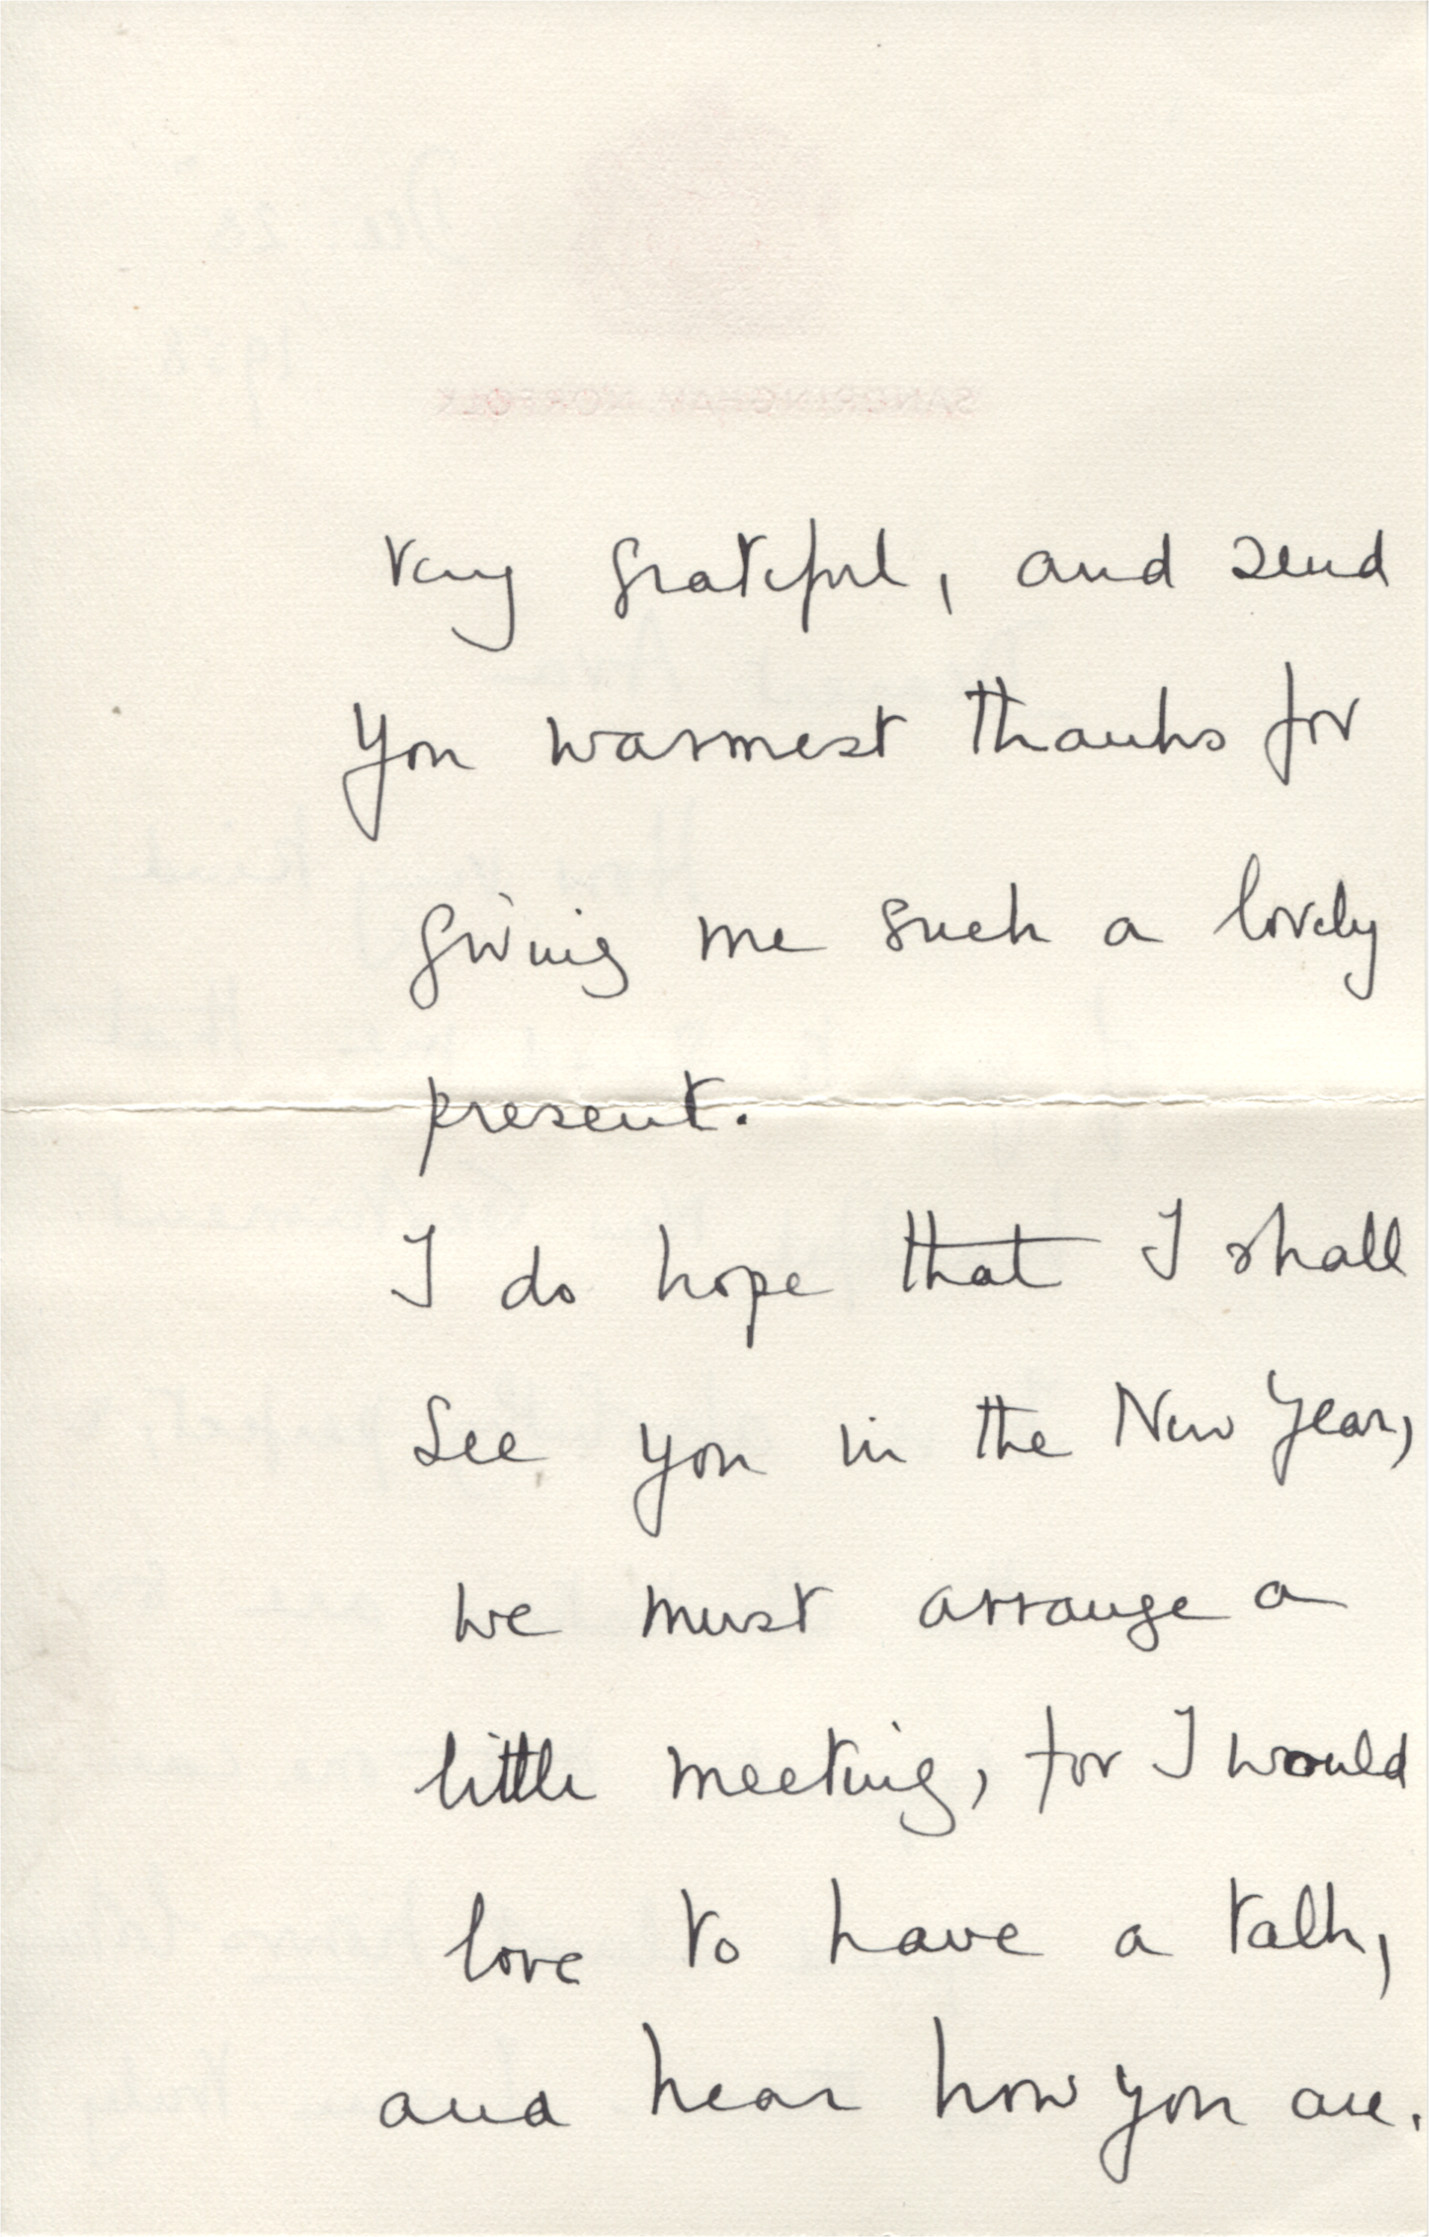 very grateful, and send
you warmest thanks for
giving me such a lovely
present.
I do hope that I shall
see you in the New Year,
we must arrange a
little meeting, for I would
love to have a talk,
and hear how you are.
SANDRINGHAM, NORFOLK